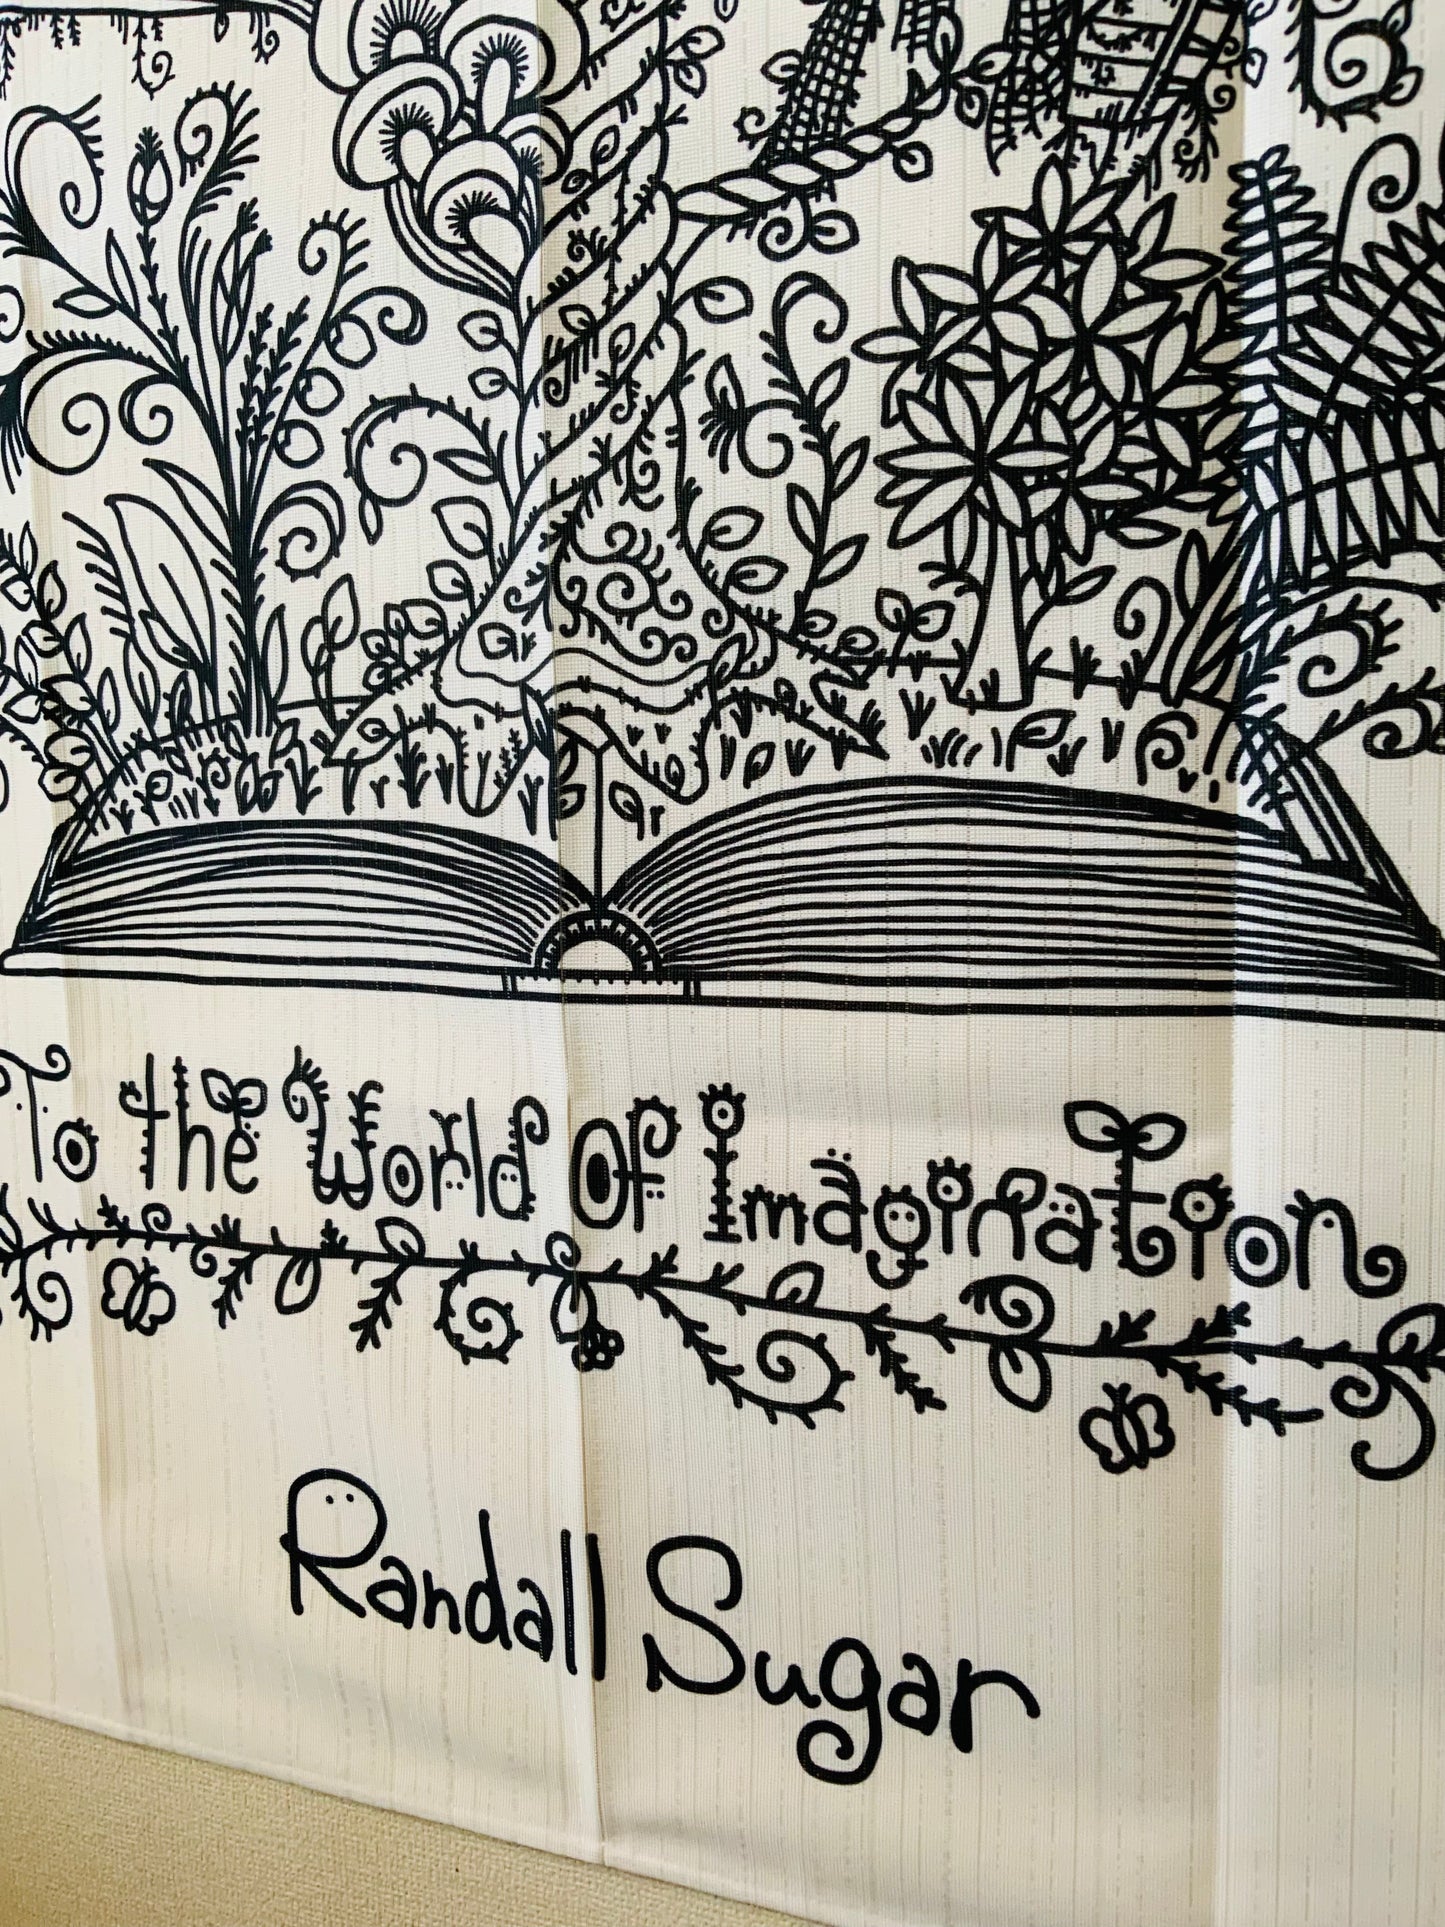 To the World Of Imagination
Randall Sugar